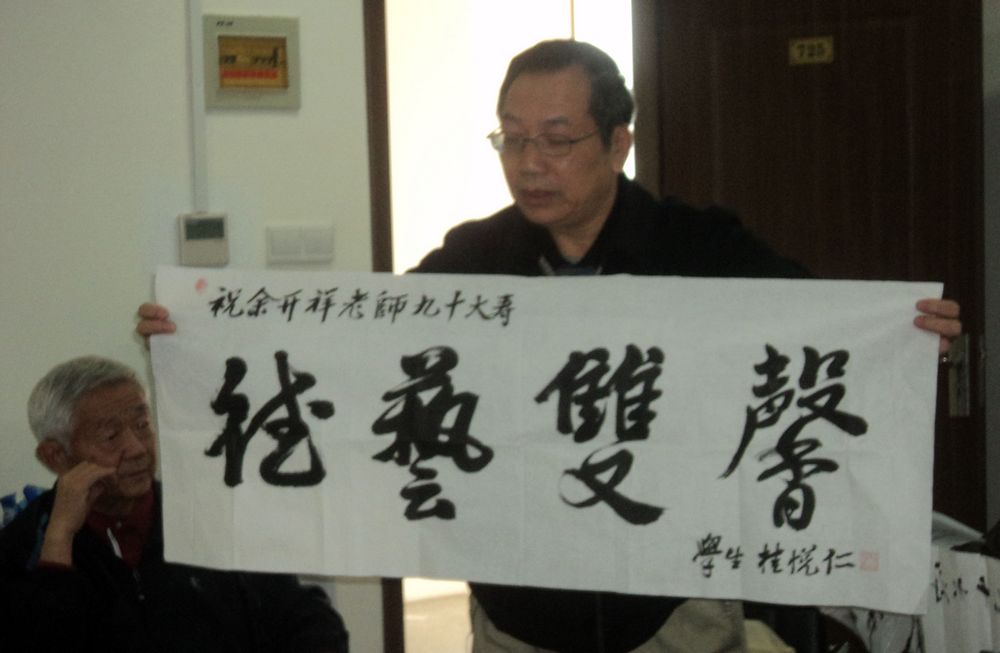 725
祝余开祥老師九十大寿
德藝雙馨
學生 桂悦仁